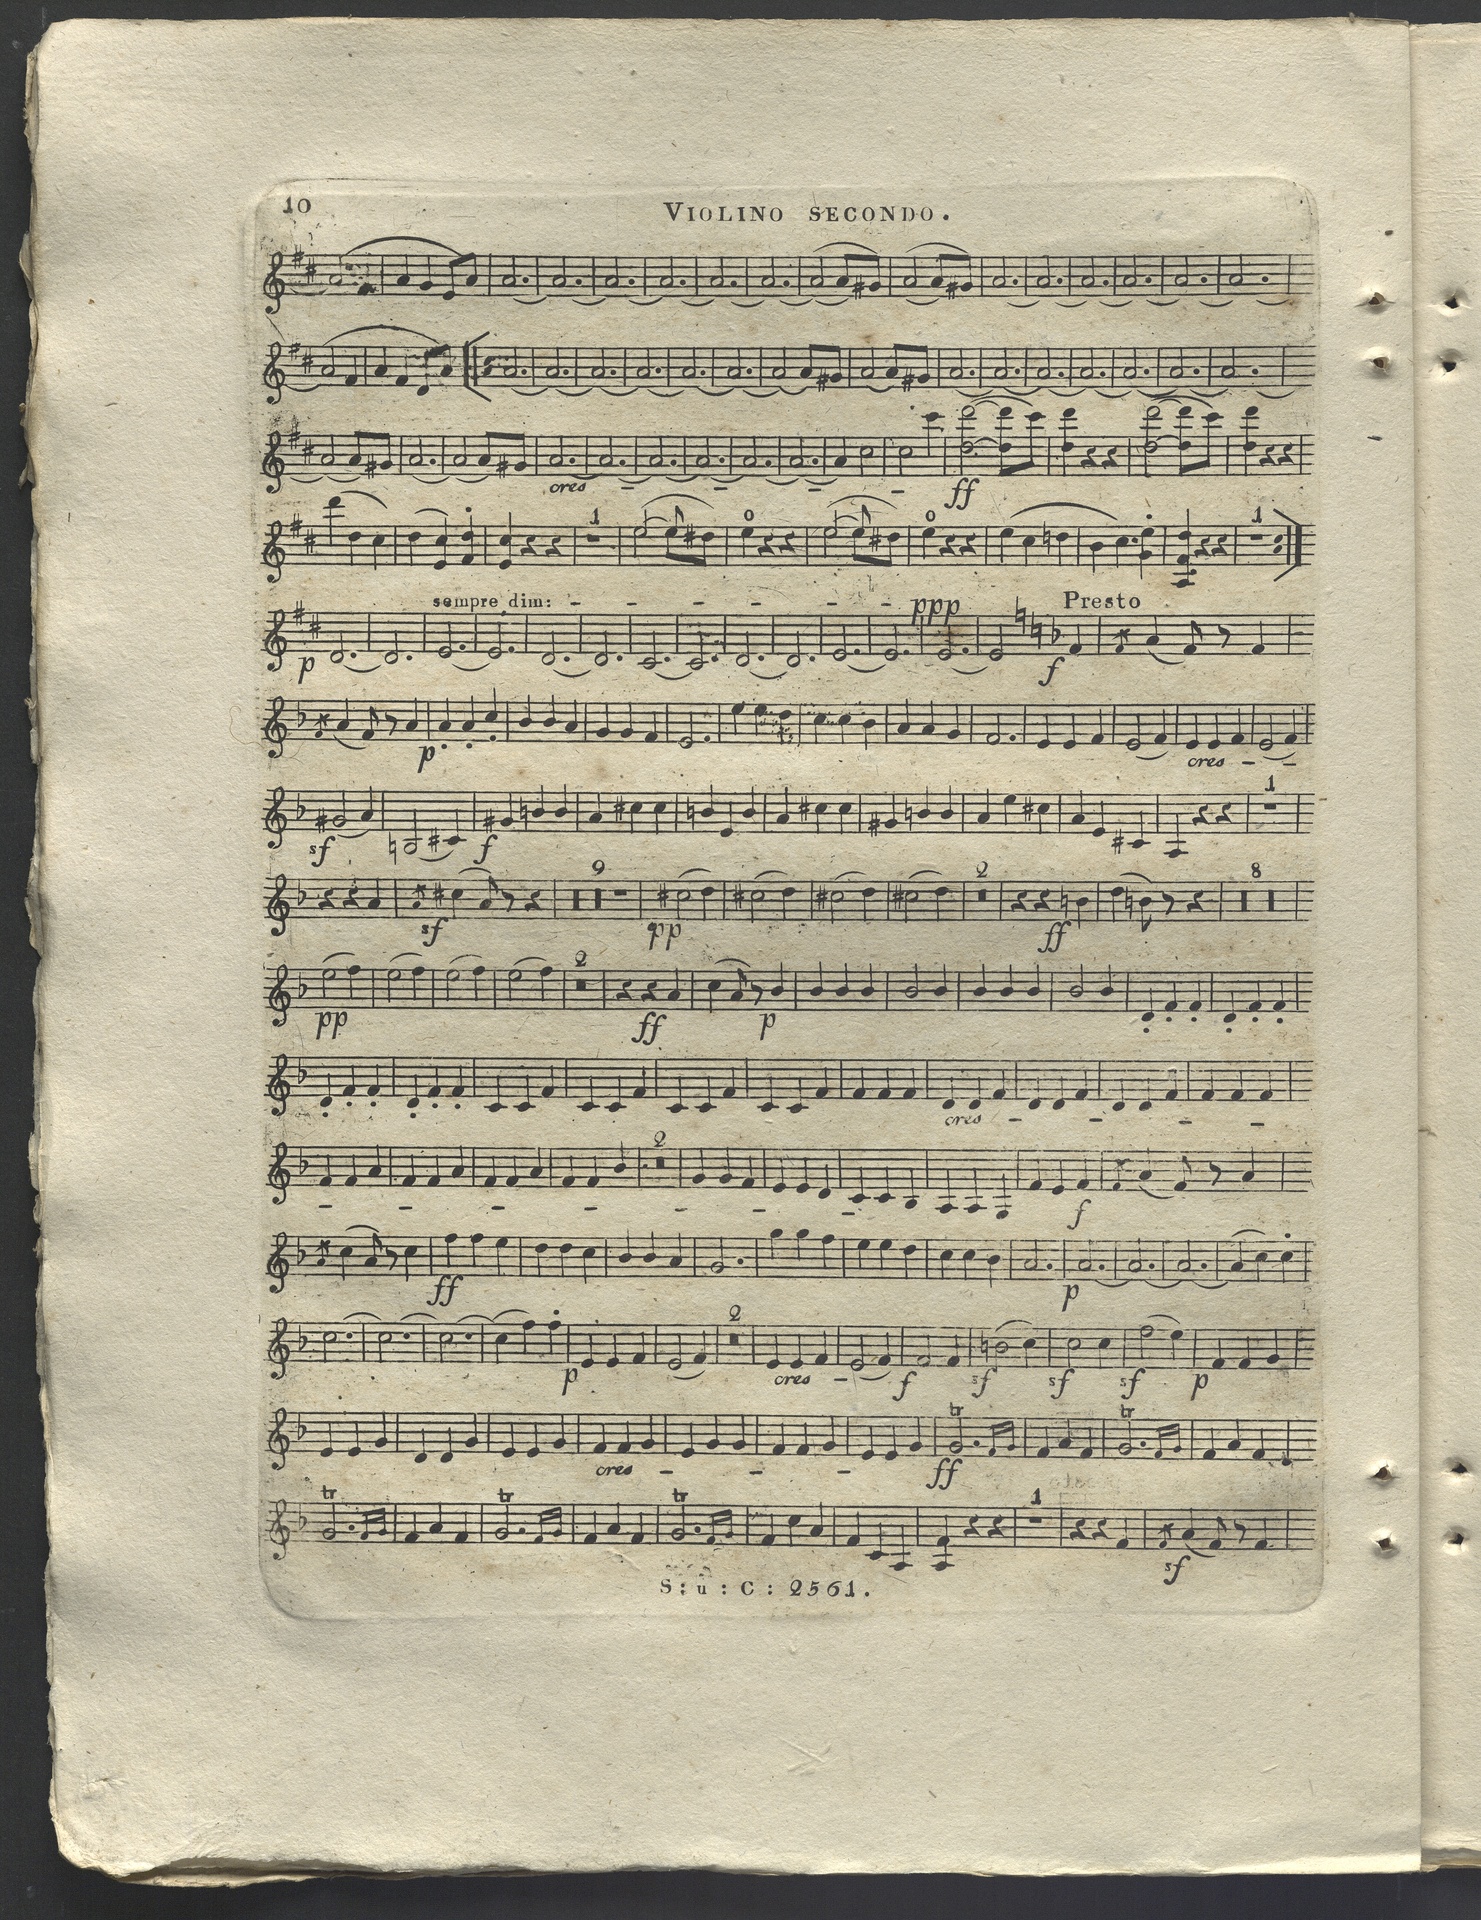 10
VIOLINO SECONDO.
cres
ff
1
0
0
1
sempre dim:
ppp
Presto
p
f
p
cres
1
sf
f
9
2
8
sf
pp
ff
2
pp
ff
p
cres
2
f
ff
p
2
p
cres
f
sf
sf
sf
p
tr
tr
cres
ff
tr
tr
tr
1
sf
S: u: C: 2561.